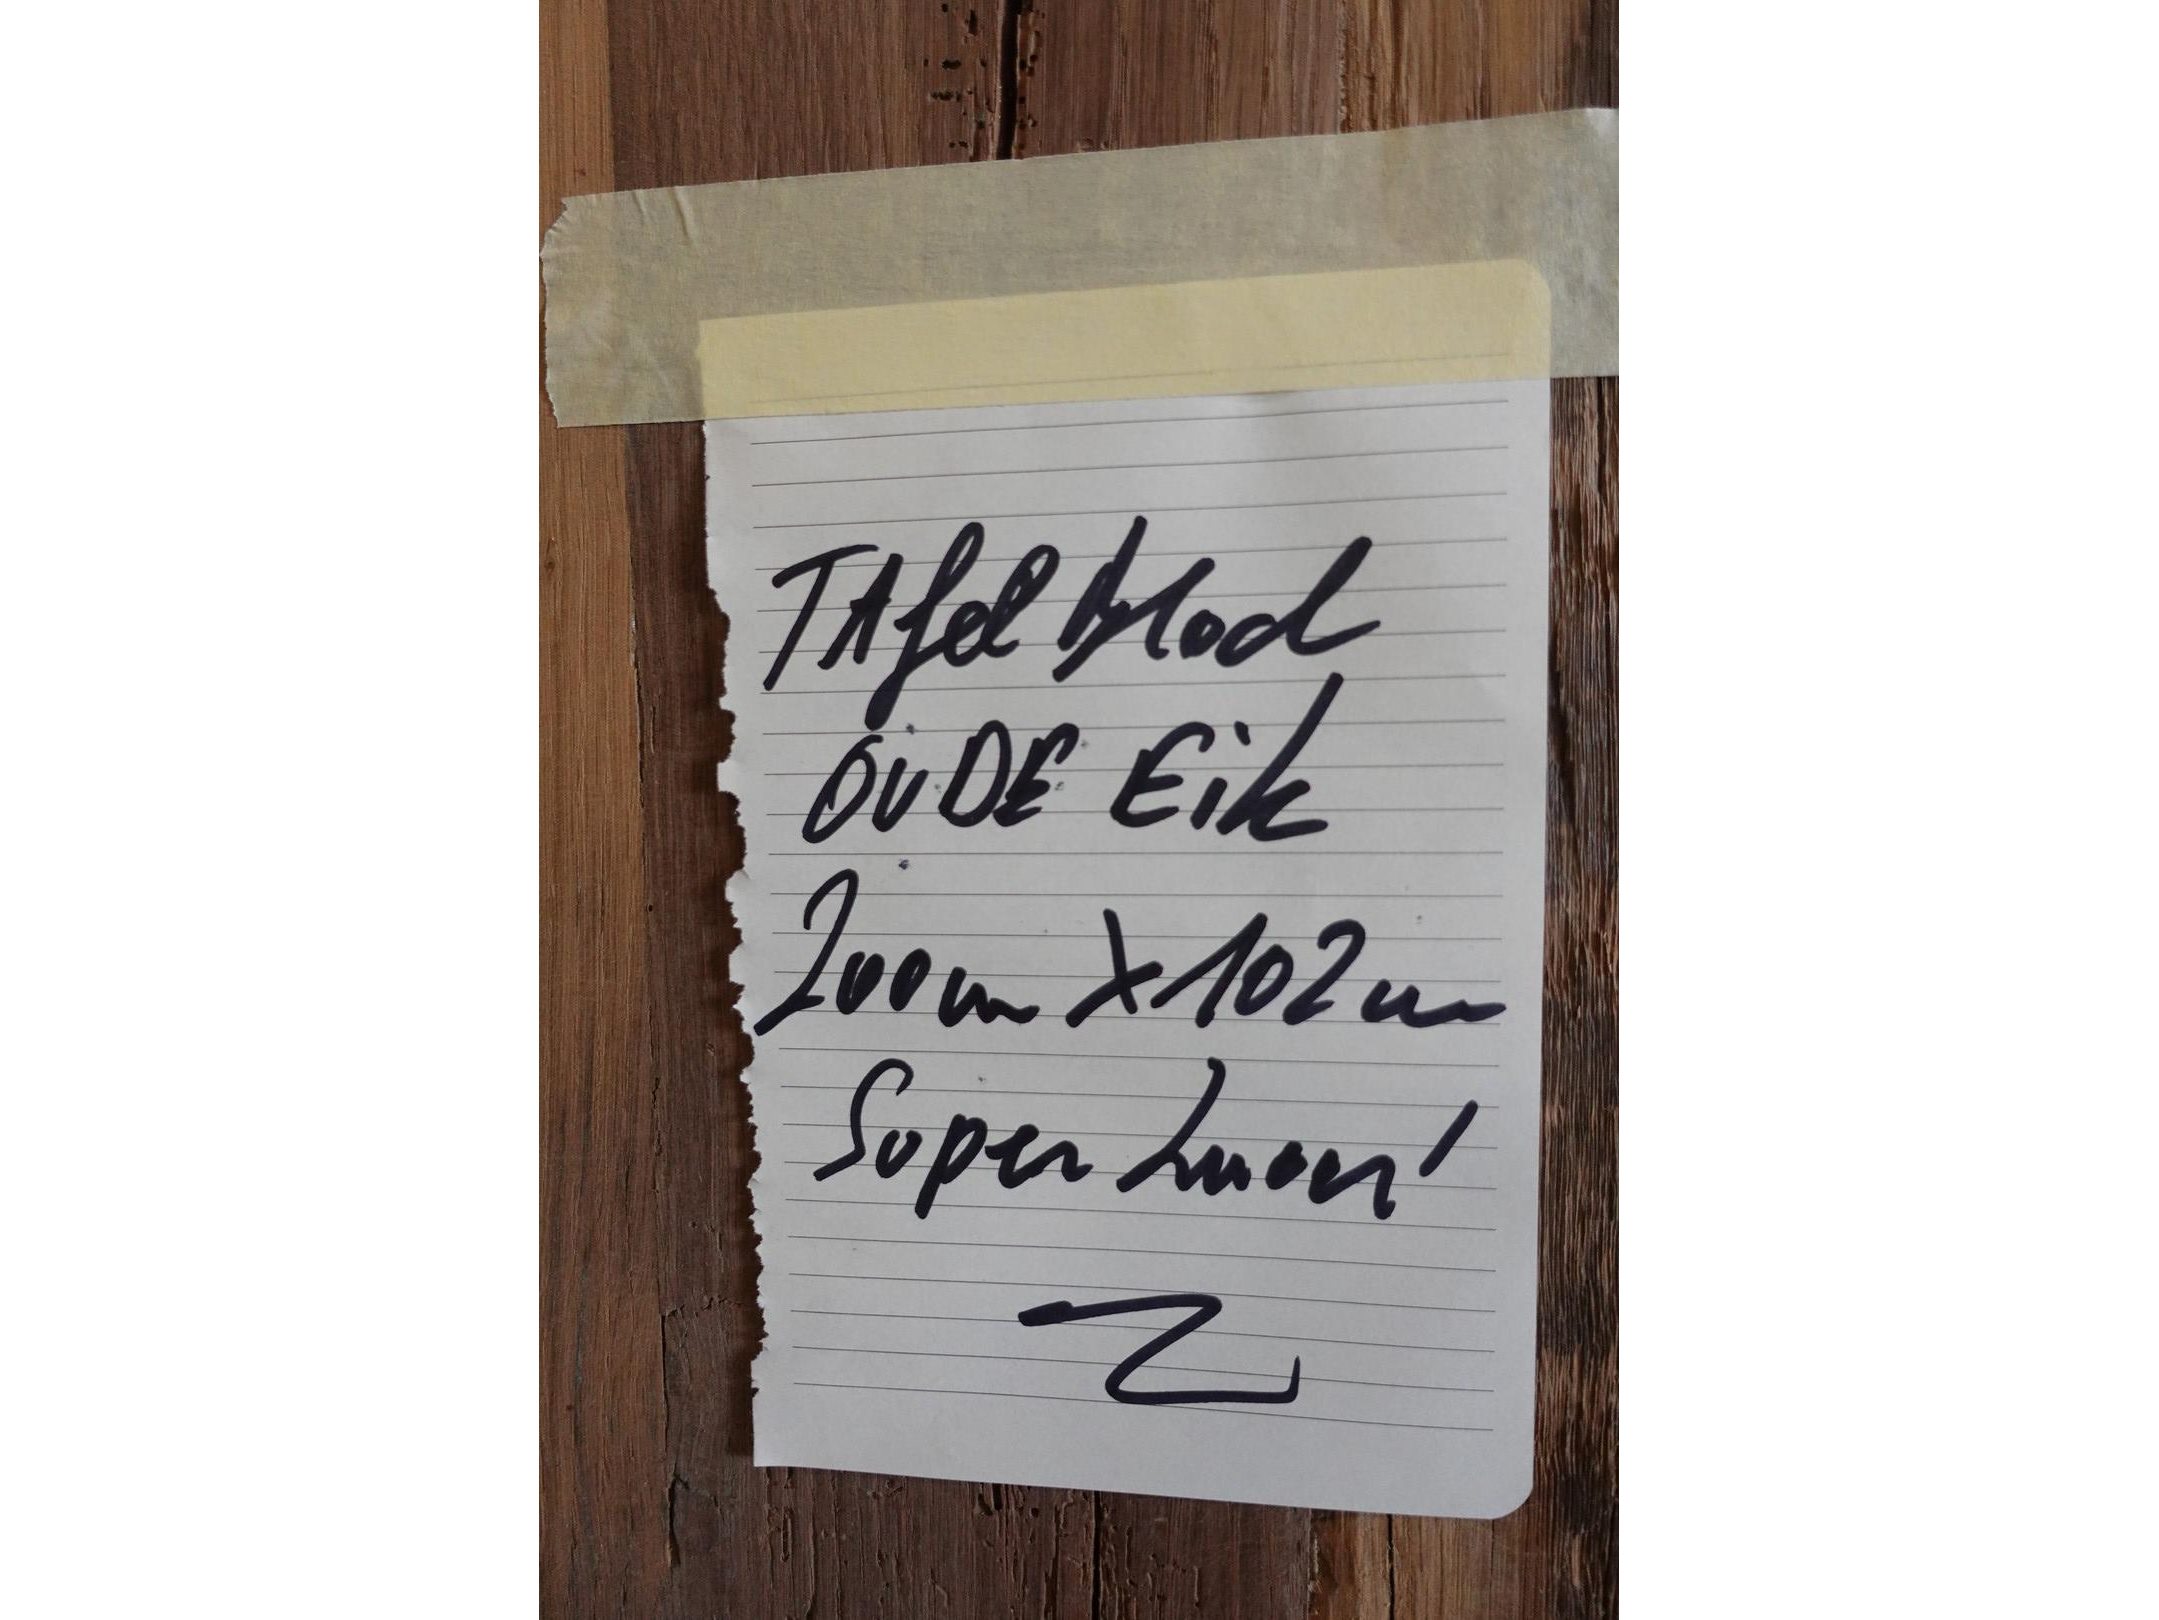 TAfel blad
OUDE Eik
200cm X 102cm
Super